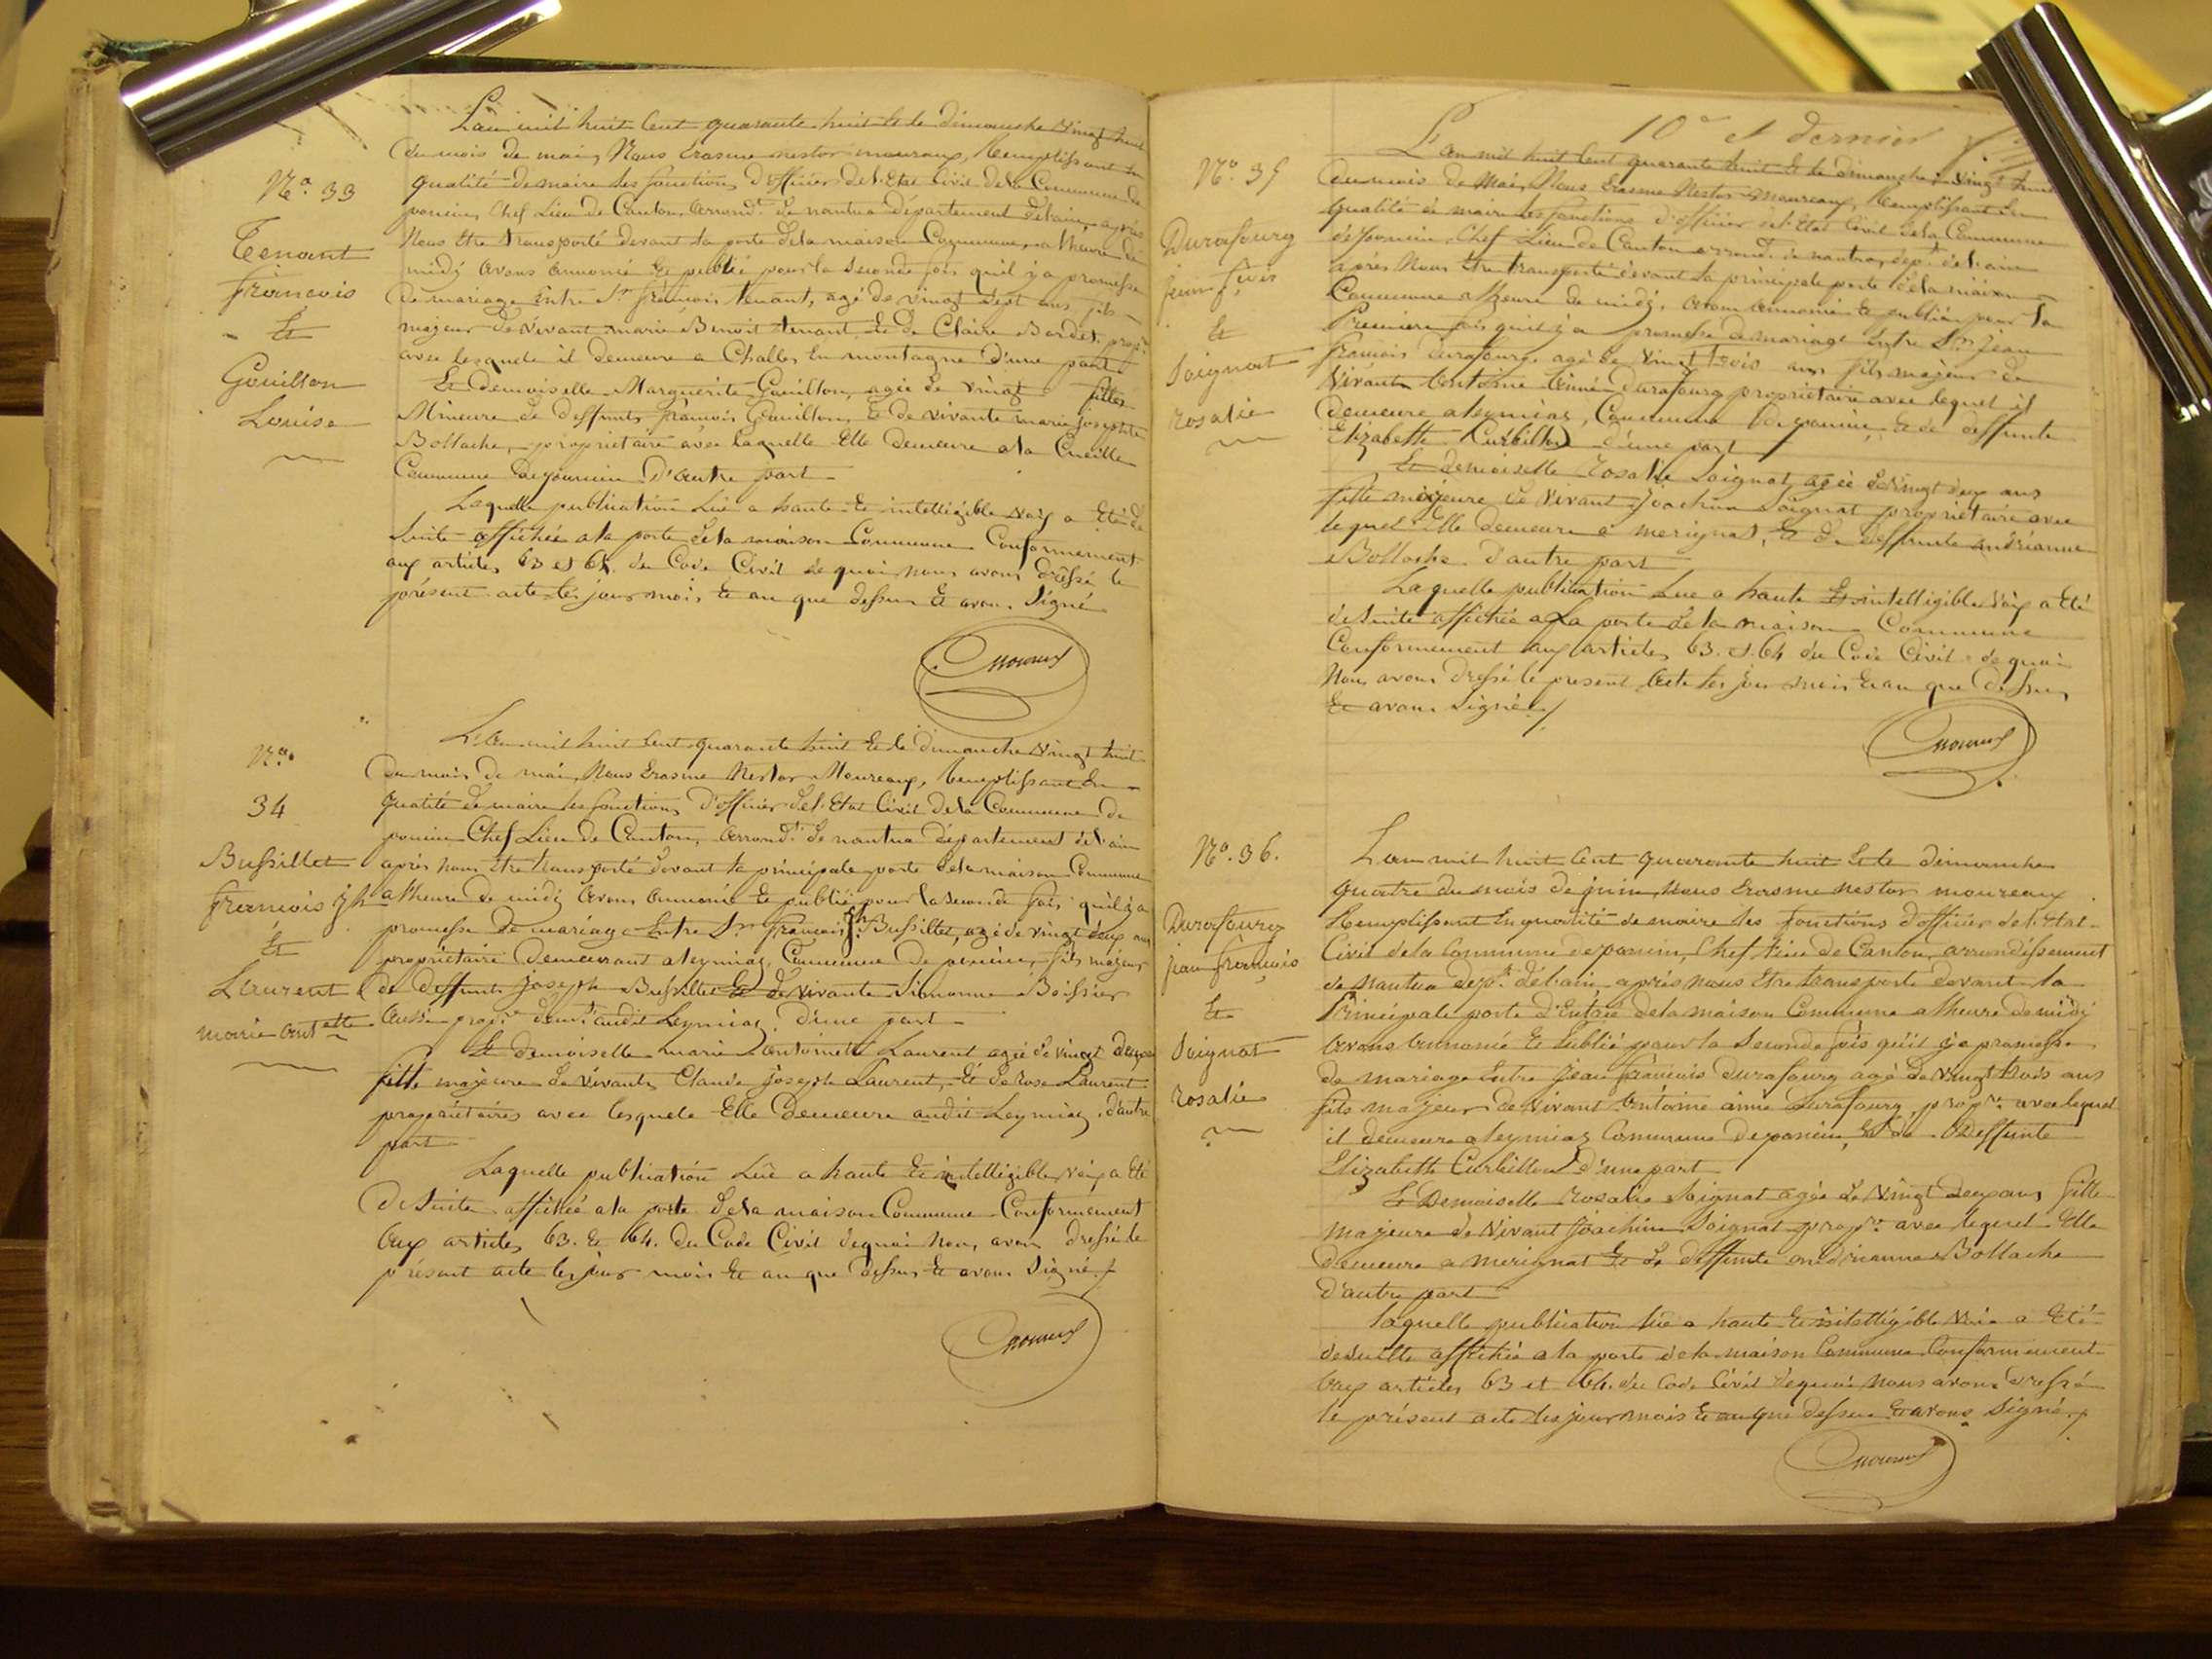 L'an mil huit cent quarante huit et le dimanche vingt huit
du mois de mai, Nous Erasme nestor moureaux, Remplissant en
N.o 33
qualité de maire les fonctions d'officier de l'Etat Civil de la Commune de
poncin, Chef Lieu de Canton, arrond.t de nantua département de l'ain, après
Tenant
Nous être transporté devant la porte de la maison Commune, a l'heure de
françois
midy avons annoncé et publié pour la seconde fois qu'il y a promesse
de mariage Entre S.r françois tenant, agé de vingt sept ans, fils
Et
majeur de vivant marie Benoit tenant et de Claire Bordet, prop.res
avec lesquels il demeure a Challes En montagne d'une part
Gouillon
Et demoiselle Marguerite Gouillon, agée de vingt filles
Louise
Mineure de deffunts françois Gouillon, Et de vivante marie josephte
Bollache, propriétaire avec laquelle Elle demeure a la Cueille
Commune de poncin D'autre part
Laquelle publication Lue a haute Et intelligible voix a Eté de
suite affichée a la porte de la maison Commune Conformement
aux articles 63 et 64 du Code Civil de quoi nous avons dressé le
présent acte les jour mois Et an que dessus Et avons signé
Moureux
L'an mil huit cent quarante huit Et le dimanche vingt huit
N.o
du mois de mai, Nous Erasme Nestor Moureaux, Remplissant En
34
qualité de maire les fonctions D'officier de l'Etat Civil de la Commune de
poncin Chef Lieu de Canton, arrond.t de nantua département de l'ain
Bussillet
après nous être transporté devant la principale porte de la maison Commune
françois jh
a l'heure de midy avons annoncé Et publié pour la seconde fois qu'il y a
promesse de mariage Entre S.r françois jh Bussillet, agé de vingt deux ans
Et
propriétaire demeurant a leymiaz, Commune de poncin, fils majeur
Laurent
de deffunt joseph Bussillet Et de vivante Boissier
marie ant.ette
aussi prop.re dem.t audit Leymiaz, d'une part
Et demoiselle marie antoinette Laurent agée de vingt deux
fille majeure de vivants Claude joseph Laurent, Et de rose Laurent
propriétaires avec lesquels Elle demeure audit Leymiaz, d'autre
part
Laquelle publication Lue a haute Et intelligible voix a Eté
De suite affichée a la porte de la maison Commune Conformément
aux articles 63. Et 64. Du Code Civil de quoi nous avons dressé le
présent acte les jour mois Et an que dessus Et avons signé
Moureux
10e et dernier
L'an mil huit cent quarante huit Et le dimanche vingt huit
N.o 35
du mois de Mai, Nous Erasme Nestor Moureaux, Remplissant En
qualité de maire les fonctions d'officier de l'Etat Civil de la Commune
Durafourg
de poncin, Chef Lieu de Canton arrond.t de nantua, dep.t de l'ain
jean f.çois
après Nous être transporté devant la principale porte de la maison
Commune a l'heure de midy, avons annoncé Et publié pour la
Et
Premiere fois qu'il y a promesse de mariage Entre S.r jean
Soignat
françois Durafourg agé de vingt trois ans fils majeur de
Vivant Antoine aimé Durafourg propriétaire avec lequel il
rosalie
demeure a leymiaz, Commune de poncin, Et de deffunte
Elizabeth Curbillon d'une part
Et demoiselle rosalie Soignat agée de vingt deux ans
fille majeure de vivant joachim Soignat propriétaire avec
lequel Elle demeure a merignat, Et de deffunte andrianne
Bollache d'autre part
Laquelle publication Lue a haute Et intelligible voix a Eté
de suite affichée a La porte de la maison Commune
Conformement aux articles 63. et 64 du Code Civil de quoi
Nous avons dressé le present acte les jour mois Et an que dessus
Et avons signé
Moureux
N.o 36.
L'an mil huit cent quarante huit Et le dimanche
quatre du mois de juin, nous Erasme nestor moureaux
Durafourg
Remplissant En qualité de maire les fonctions d'officier de l'Etat
jean françois
Civil de la Commune de poncin, Chef Lieu de Canton, arrondissement
de nantua dep.t de l'ain, après nous Etre transporté devant la
Et
Principale porte d'Entrée de la maison Commune a l'heure de midy
Soignat
avons annoncé Et publié pour la seconde fois qu'il y a promesse
de mariage Entre jean françois Durafourg agé de vingt trois ans
rosalie
fils majeur de vivant antoine aimé Durafourg, prop.re avec lequel
il demeure a leymiaz Commune de poncin, Et de Deffunte
Elizabeth Curbillon d'une part
Et Demoiselle rosalie Soignat agée de vingt deux ans fille
majeure de vivant joachim Soignat prop.re avec lequel Elle
demeure a merignat Et de deffunte andrianne Bollache
d'autre part
laquelle publication lue a haute Et intelligible voie a Eté
de suitte affichée a la porte de la maison Commune Conformement
aux articles 63 et 64. du Code Civil de quoi nous avons dressé
le présent acte les jour mois Et an que dessus Et avons signé
Moureux